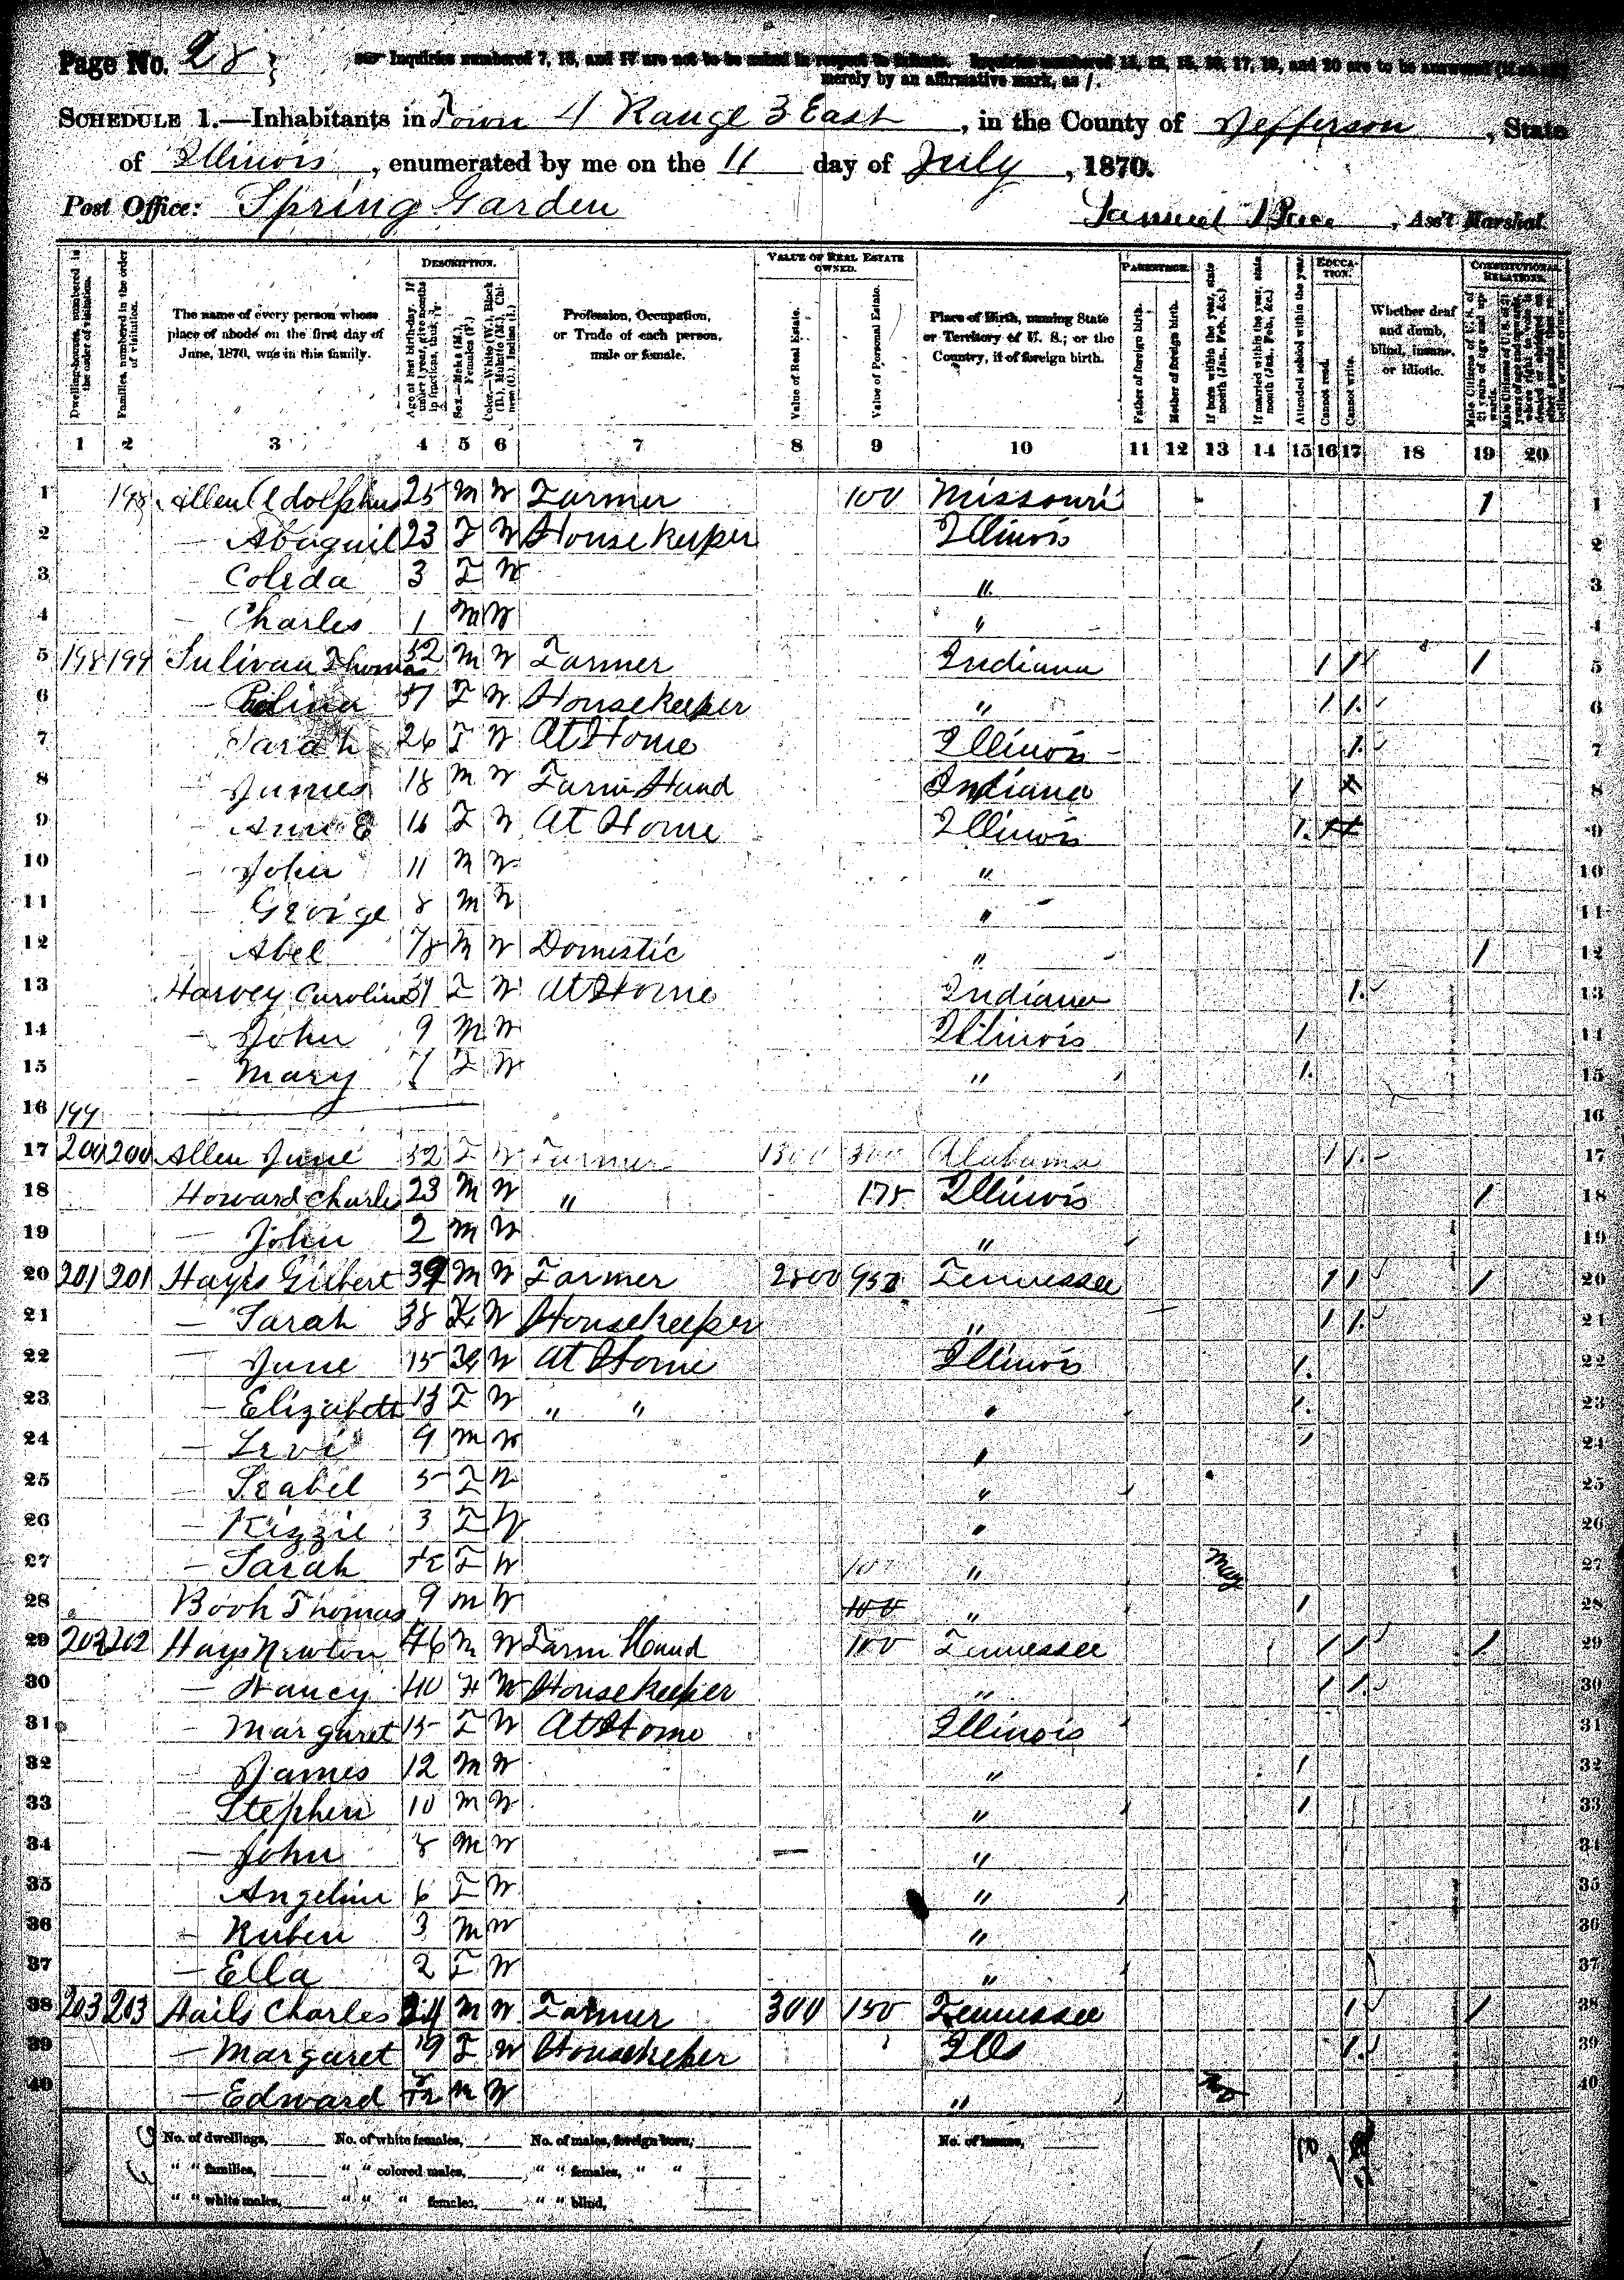 Page No. 28
Inquiries numbered 7, 16, and 17 are not to be asked in respect to infants. Inquiries numbered 11, 12, 15, 16, 17, 19, and 20 are to be answered (if at all)
merely by an affirmative mark, as /.
SCHEDULE 1.—Inhabitants in Town 4 Range 3 East, in the County of Jefferson, State
of Illinois, enumerated by me on the 11 day of July, 1870.
Post Office: Spring Garden
Samuel, Ass't Marshal.
DESCRIPTION. VALUE OF REAL ESTATE OWNED. PARENTAGE. EDUCATION. CONSTITUTIONAL RELATIONS.
Dwelling-houses, numbered in the order of visitation.
Families, numbered in the order of visitation.
The name of every person whose place of abode on the first day of June, 1870, was in this family.
Age at last birth-day. If under 1 year, give months in fractions, thus, 3/12
Sex.—Males (M.), Females (F.)
Color.—White (W.), Black (B.), Mulatto (M.), Chinese (C.), Indian (I.)
Profession, Occupation, or Trade of each person, male or female.
Value of Real Estate.
Value of Personal Estate.
Place of Birth, naming State or Territory of U. S.; or the Country, if of foreign birth.
Father of foreign birth.
Mother of foreign birth.
If born within the year, state month (Jan., Feb., &c.)
If married within the year, state month (Jan., Feb., &c.)
Attended school within the year.
Cannot read.
Cannot write.
Whether deaf and dumb, blind, insane, or idiotic.
Male Citizens of U. S. of 21 years of age and upwards.
1 2 3 4 5 6 7 8 9 10 11 12 13 14 15 16 17 18 19 20
1 198 Allen Adolphus 25 M W Farmer 100 Missouri 1 1
2 — Abaguil 23 F W Housekeeper Illinois 2
3 Coleda 3 F W " 3
4 — Charles 1 M W " 4
5 198 199 Sulivan Thomas 52 M W Farmer Indiana 1 1 1 5
6 — F W Housekeeper " 1 1 6
7 Sarah 26 F W At Home Illinois 1 7
8 — James 18 M W Farm Hand Indiana 1 8
9 — Ann E 16 F W At Home Illinois 1 9
10 — John 11 M W " 10
11 — George 8 M W " 11
12 — Abel 78 M W Domestic " 1 12
13 Harvey Caroline 31 F W At Home Indiana 1 13
14 — John 9 M W Illinois 1 14
15 — Mary 7 F W " 1 15
16 199 16
17 200 200 Allen June 52 F W Farmer 1300 300 Alabama 1 1 17
18 Howard Charles 23 M W " 175 Illinois 1 18
19 — John 2 M W " 19
20 201 201 Hayes Gilbert 39 M W Farmer 2800 950 Tennessee 1 1 1 20
21 — Sarah 38 F W Housekeeper " 1 1 21
22 — June 15 F W At Home Illinois 1 22
23 — Elizabeth 13 F W " " " 1 23
24 — Levi 9 M W " 1 24
25 — Isabel 5 F W " 25
26 — Kizzie 3 F W " 26
27 — Sarah F W 100 " May 27
28 Book Thomas 9 M W 100 " 1 28
29 202 202 Hays Newton 46 M W Farm Hand 100 Tennessee 1 1 1 29
30 — Nancy 40 F W Housekeeper " 1 1 30
31 — Margaret 15 F W At Home Illinois 31
32 — James 12 M W " 1 32
33 — Stephen 10 M W " 1 33
34 — John 8 M W — " 34
35 — Angeline 6 F W " 35
36 — Ruben 3 M W " 36
37 — Ella 2 F W " 37
38 203 203 Hails Charles 24 M W Farmer 300 150 Tennessee 1 1 38
39 — Margaret 19 F W Housekeper Ills 1 39
40 — Edward M W " 40
No. of dwellings, No. of white females, No. of males, foreign born, No. of insane,
" " families, " " colored males, " " females, " "
" " white males, " " " females, " " blind,